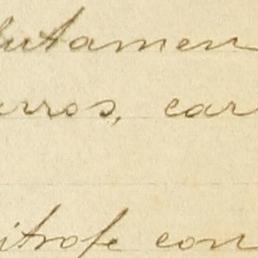 lutamen
rros, car
itrofe con